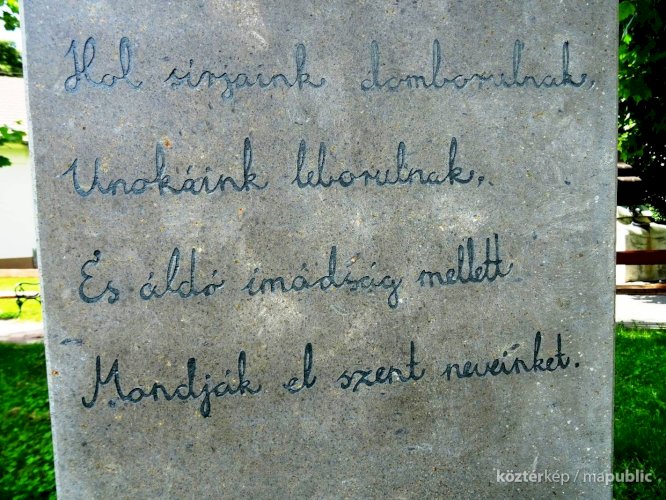 Hol sírjaink domborulnak,
Unokáink leborulnak,
És áldó imádság mellett
Mondják el szent neveinket.
köztérkép / mapublic